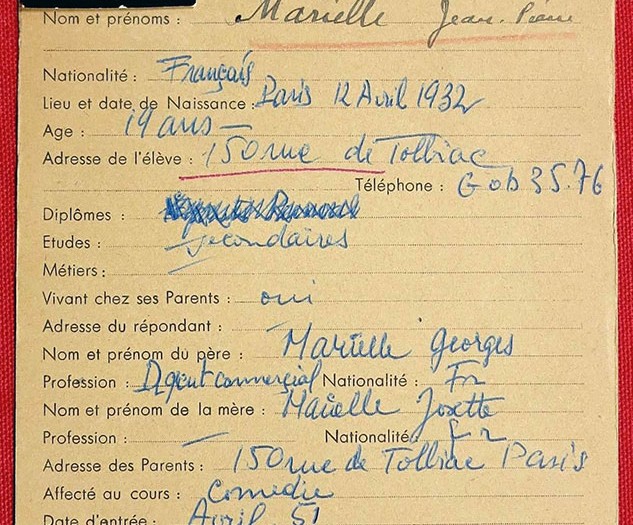 Nom et prénoms : Marielle Jean-Pierre
Nationalité : Français
Lieu et date de Naissance : Paris 12 Avril 1932
Age : 19 ans —
Adresse de l'élève : 150 rue de Tolbiac
Téléphone : GOB 35.76
Diplômes :
Etudes : secondaires
Métiers : —
Vivant chez ses Parents : oui
Adresse du répondant :
Nom et prénom du père : Marielle Georges
Profession : Agent commercial Nationalité : Fr
Nom et prénom de la mère : Marielle Josette
Profession : — Nationalité : Fr
Adresse des Parents : 150 rue de Tolbiac Paris
Affecté au cours : Comedie
Date d'entrée : Avril 51